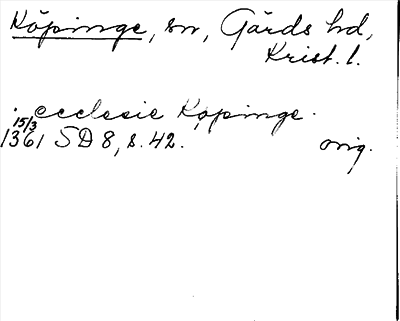 Köpinge, sn, Gärds hd,
Krist. l.
. ecclesie Køpinge.
15/3
1361 SD 8, s. 42. orig.